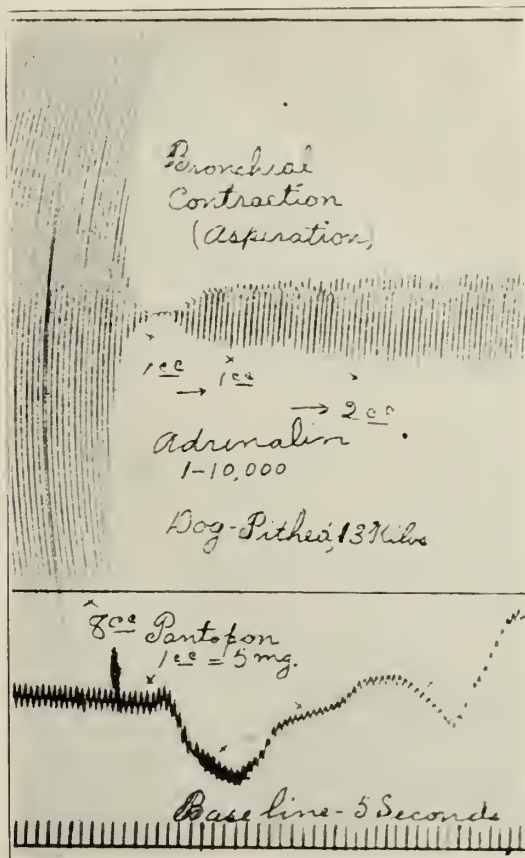 Bronchial
Contraction
(Aspiration)
1cc → 1cc
→ 2cc
Adrenalin
1-10,000
Dog-Pithed, 13 Kilos
8cc Pantopon
1cc = 5mg.
Base line - 5 Seconds